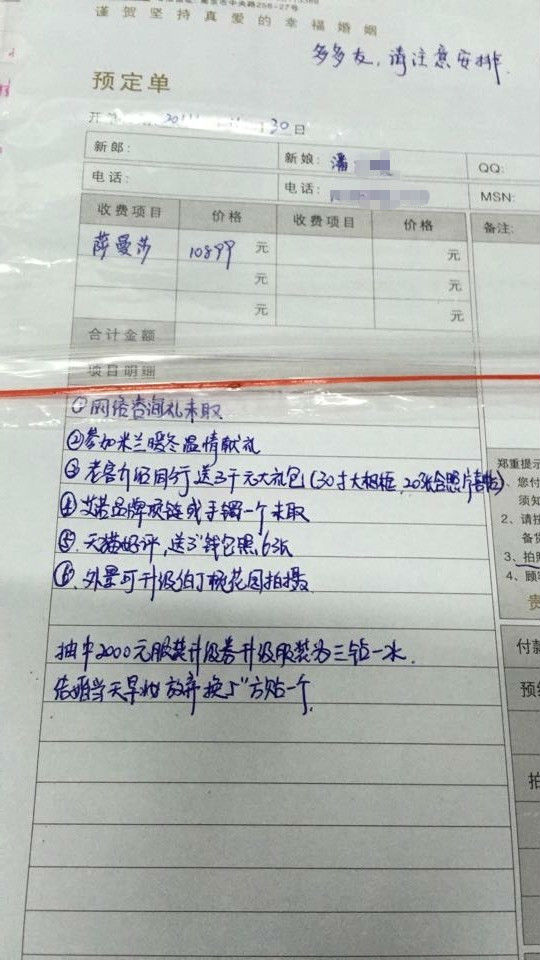 中央路258-27号
谨贺坚持真爱的幸福婚姻
多多友,请注意安排.
预定单
30日
新郎: 新娘:潘 QQ:
电话: 电话: MSN:
收费项目 价格 收费项目 价格 备注:
萨曼莎 10899元 元
元 元
元 元
合计金额
项目明细
①网络咨询礼未取
②参加米兰暖冬温情献礼
③老客介绍同行送3千元大礼包(30寸大相框,20张合照片
④艾诺品牌项链或手镯一个未取
⑤.天猫好评,送3"钱包照6张
⑥.外景可升级伯丁桃花园拍摄
抽中2000元服装升级券升级服装为三钻一冰.
结婚当天早妆放弃换 方 一个.
郑重提示
、您付
须知
2、请按
备货
3、拍照
4、顾客
贵
付款
预约
拍